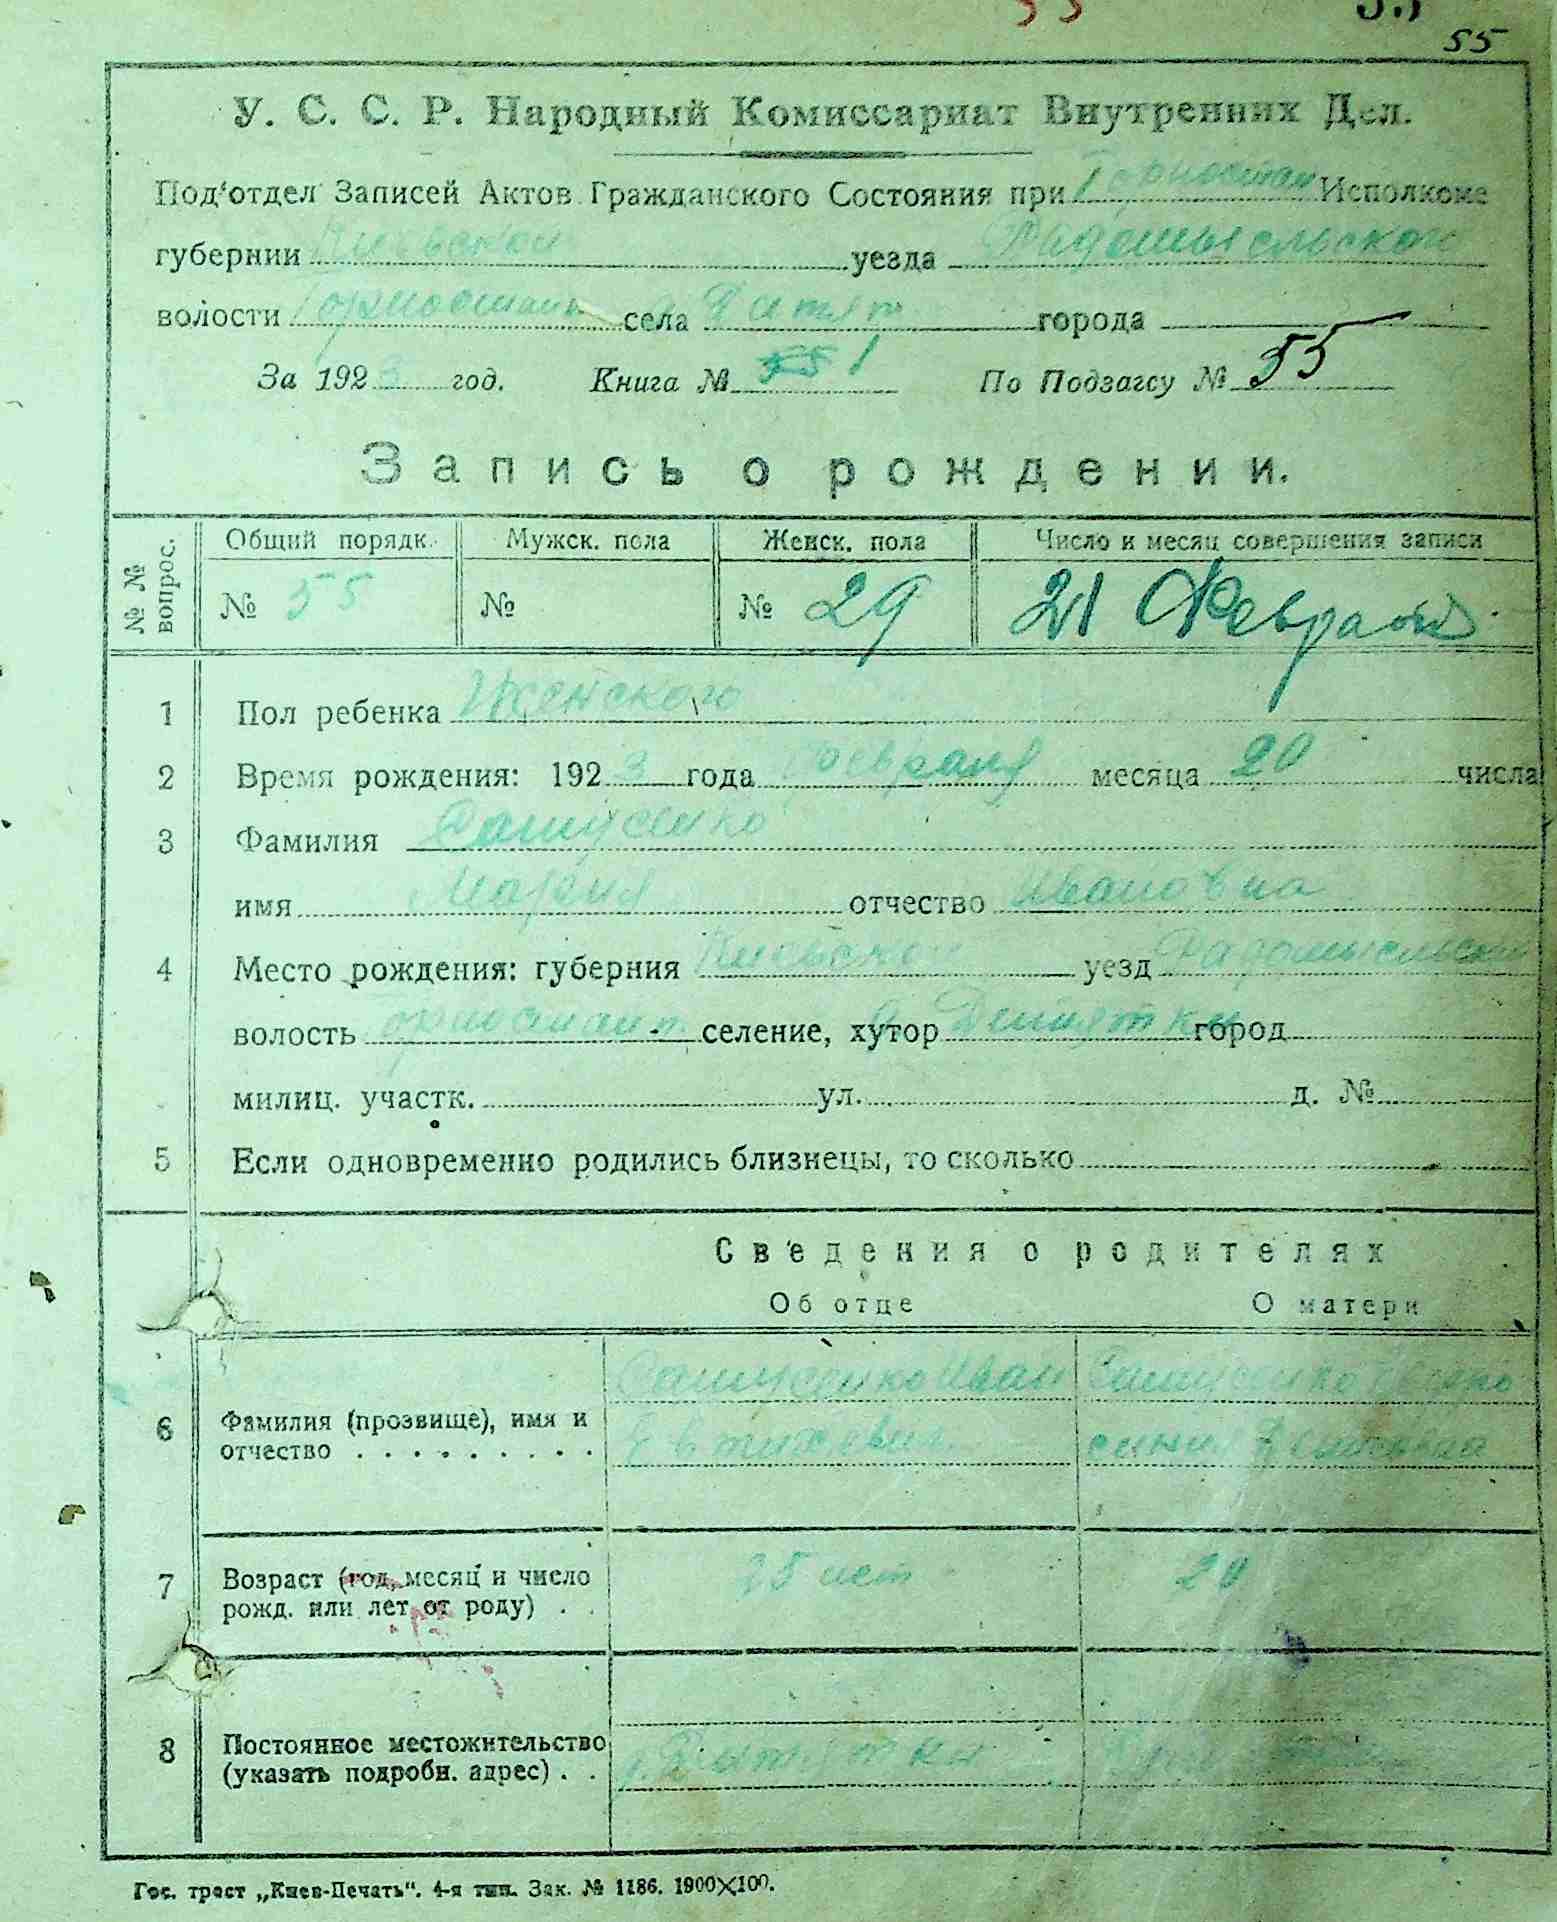 55
У. С. С. Р. Народный Комиссариат Внутренних Дел.
Под'отдел Записей Актов Гражданского Состояния при Горностай Исполкоме
губернии Киевской уезда Радомысльской
волости Горностай села города
За 1923 год. Книга № 1 По Подзагсу № 55
Запись о рождении.
№ № вопрос. Общий порядк. Мужск. пола Женск. пола Число и месяц совершения записи
№ 55 № № 29 21 Февраля
1 Пол ребенка Женского
2 Время рождения: 1923 года Февраля месяца 20 числа
3 Фамилия
имя Мария отчество Ивановна
4 Место рождения: губерния Киевской уезд Радомысльский
волость Горностай селение, хутор город
милиц. участк. ул. д. №
5 Если одновременно родились близнецы, то сколько
Сведения о родителях
Об отце О матери
6 Фамилия (прозвище), имя и отчество Иван Евтихиевич
7 Возраст (год, месяц и число рожд. или лет от роду) 25 лет 20
8 Постоянное местожительство (указать подробн. адрес)
Гос. трест „Киев-Печать“. 4-я тип. Зак. № 1186. 1900×100.